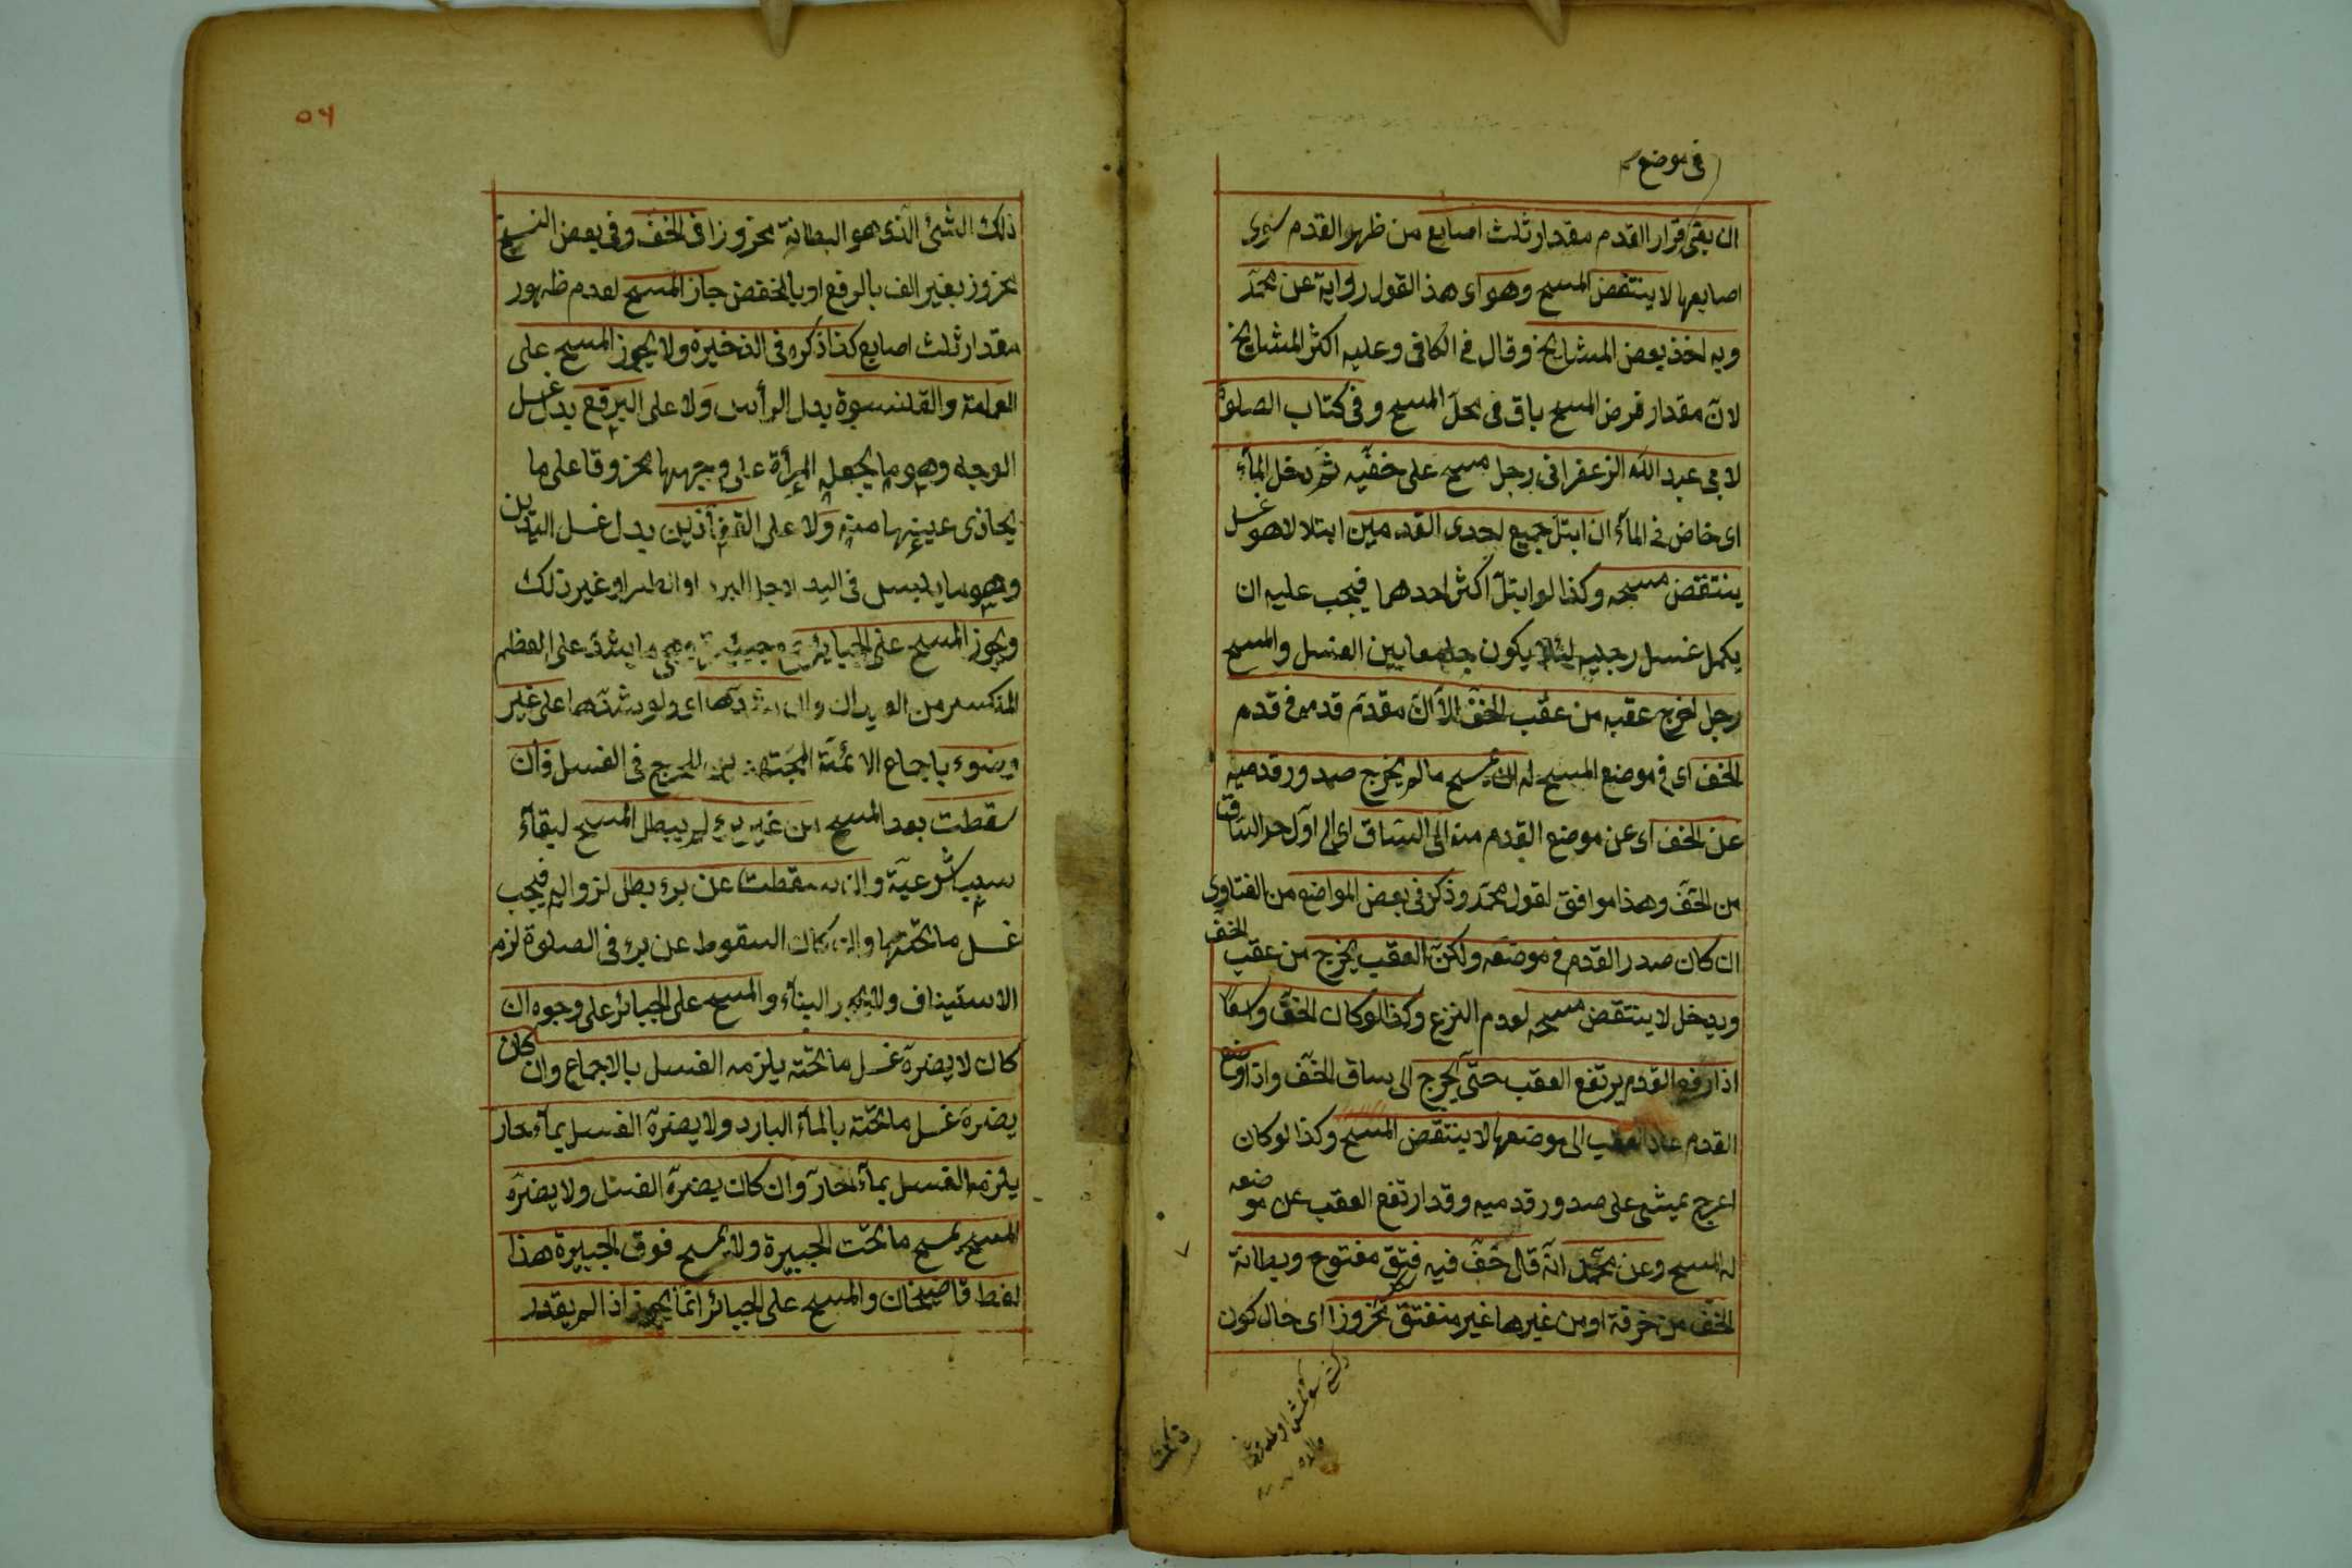 في موضع
ان بقي قرار القدم مقدار ثلث اصابع من ظهر القدم سوى
اصابعها لا ينتقض المسح وهو اى هذا القول رواية عن محمد
وبه اخذ بعض المشايخ وقال في الكافى وعليه اكثر المشايخ
لان مقدار فرض المسح باق فى محل المسح وفى كتاب الصلوة
لابى عبد الله الزعفرانى رجل مسح على خفيه ثم دخل المآء
اى خاض فى المآء ان ابتل جميع احدى القدمين ابتلالا هو غسل
ينتقض مسحه وكذا لو ابتل اكثر احدهما فيجب عليه ان
يكمل غسل رجليه لئلا يكون جامعا بين الغسل والمسح
رجل اخرج عقبه من عقب الخف الا ان مقدم قدمه فى قدم
الخف اى فى موضع المسح له ان يمسح ما لم يخرج صدور قدميه
عن الخف اى عن موضع القدم منه الى الساق اى الى اول حد الساق
من الخف وهذا موافق لقول محمد وذكر فى بعض المواضع من الفتاوى
ان كان صدر القدم فى موضعه ولكن العقب يخرج من عقب الخف
ويدخل لا ينتقض مسحه لعدم النزع وكذا لو كان الخف واسعا
اذا رفع القدم يرتفع العقب حتى يخرج الى ساق الخف واذا وضع
القدم عاد العقب الى موضعها لا ينتقض المسح وكذا لو كان
اعرج يمشى على صدور قدميه وقد ارتفع العقب عن موضعه
له المسح وعن محمد انه قال خف فيه فتق مفتوح وبطانة
الخف من خرقة او من غيرها غير منفتق مخروزا اى حال كون
ذلك
٥٦
ذلك الشئ الذى هو البطانة مخروزا فى الخف وفى بعض النسخ
مخروز بغير الف بالرفع او بالخفض جاز المسح لعدم ظهور
مقدار ثلث اصابع كذا ذكره فى الذخيرة ولا يجوز المسح على
العمامة والقلنسوة بدل الرأس ولا على البرقع بدل غسل
الوجه وهو ما يجعله المرأة على وجهها مخروقا على ما
يحاذى عينيها منه ولا على القفازين بدل غسل اليدين
وهو ما يلبس فى اليد لاجل البرد او غير ذلك
ويجوز المسح على الجباير جمع جبيرة وهى ما يشد على العظم
المنكسر من العيدان وان شدها اى ولو شدها على غير
وضوء باجماع الائمة المجتهدين للحرج فى الغسل فان
سقطت بعد المسح من غير برء لم يبطل المسح لبقآء
سبب شرعيته وان سقطت عن برء بطل لزواله فيجب
غسل ما تحتها وان كان السقوط عن برء فى الصلوة لزم
الاستيناف ولا يجوز البنآء والمسح على الجبائر على وجوه ان
كان لا يضره غسل ما تحته يلزمه الغسل بالاجماع وان كان
يضره غسل ما تحته بالمآء البارد ولا يضره الغسل بمآء حار
يلزمه الغسل بمآء الحار وان كان يضره الغسل ولا يضره
المسح يمسح ما تحت الجبيرة ولا يمسح فوق الجبيرة هذا
لفظ قاضيخان والمسح على الجبائر انما يجوز اذا لم يقدر